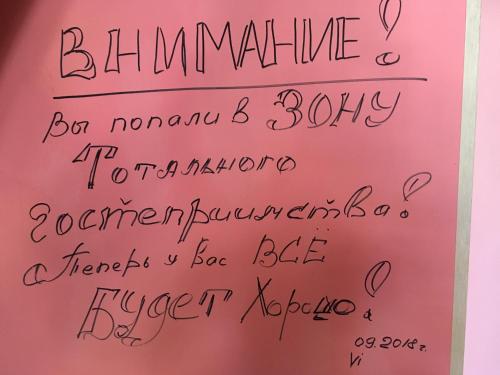 ВНИМАНИЕ!
Вы попали в ЗОНУ
Тотального
гостеприимства!
Теперь у Вас ВСЁ
БУДЕТ Хорошо!
09.2018г.
Vi